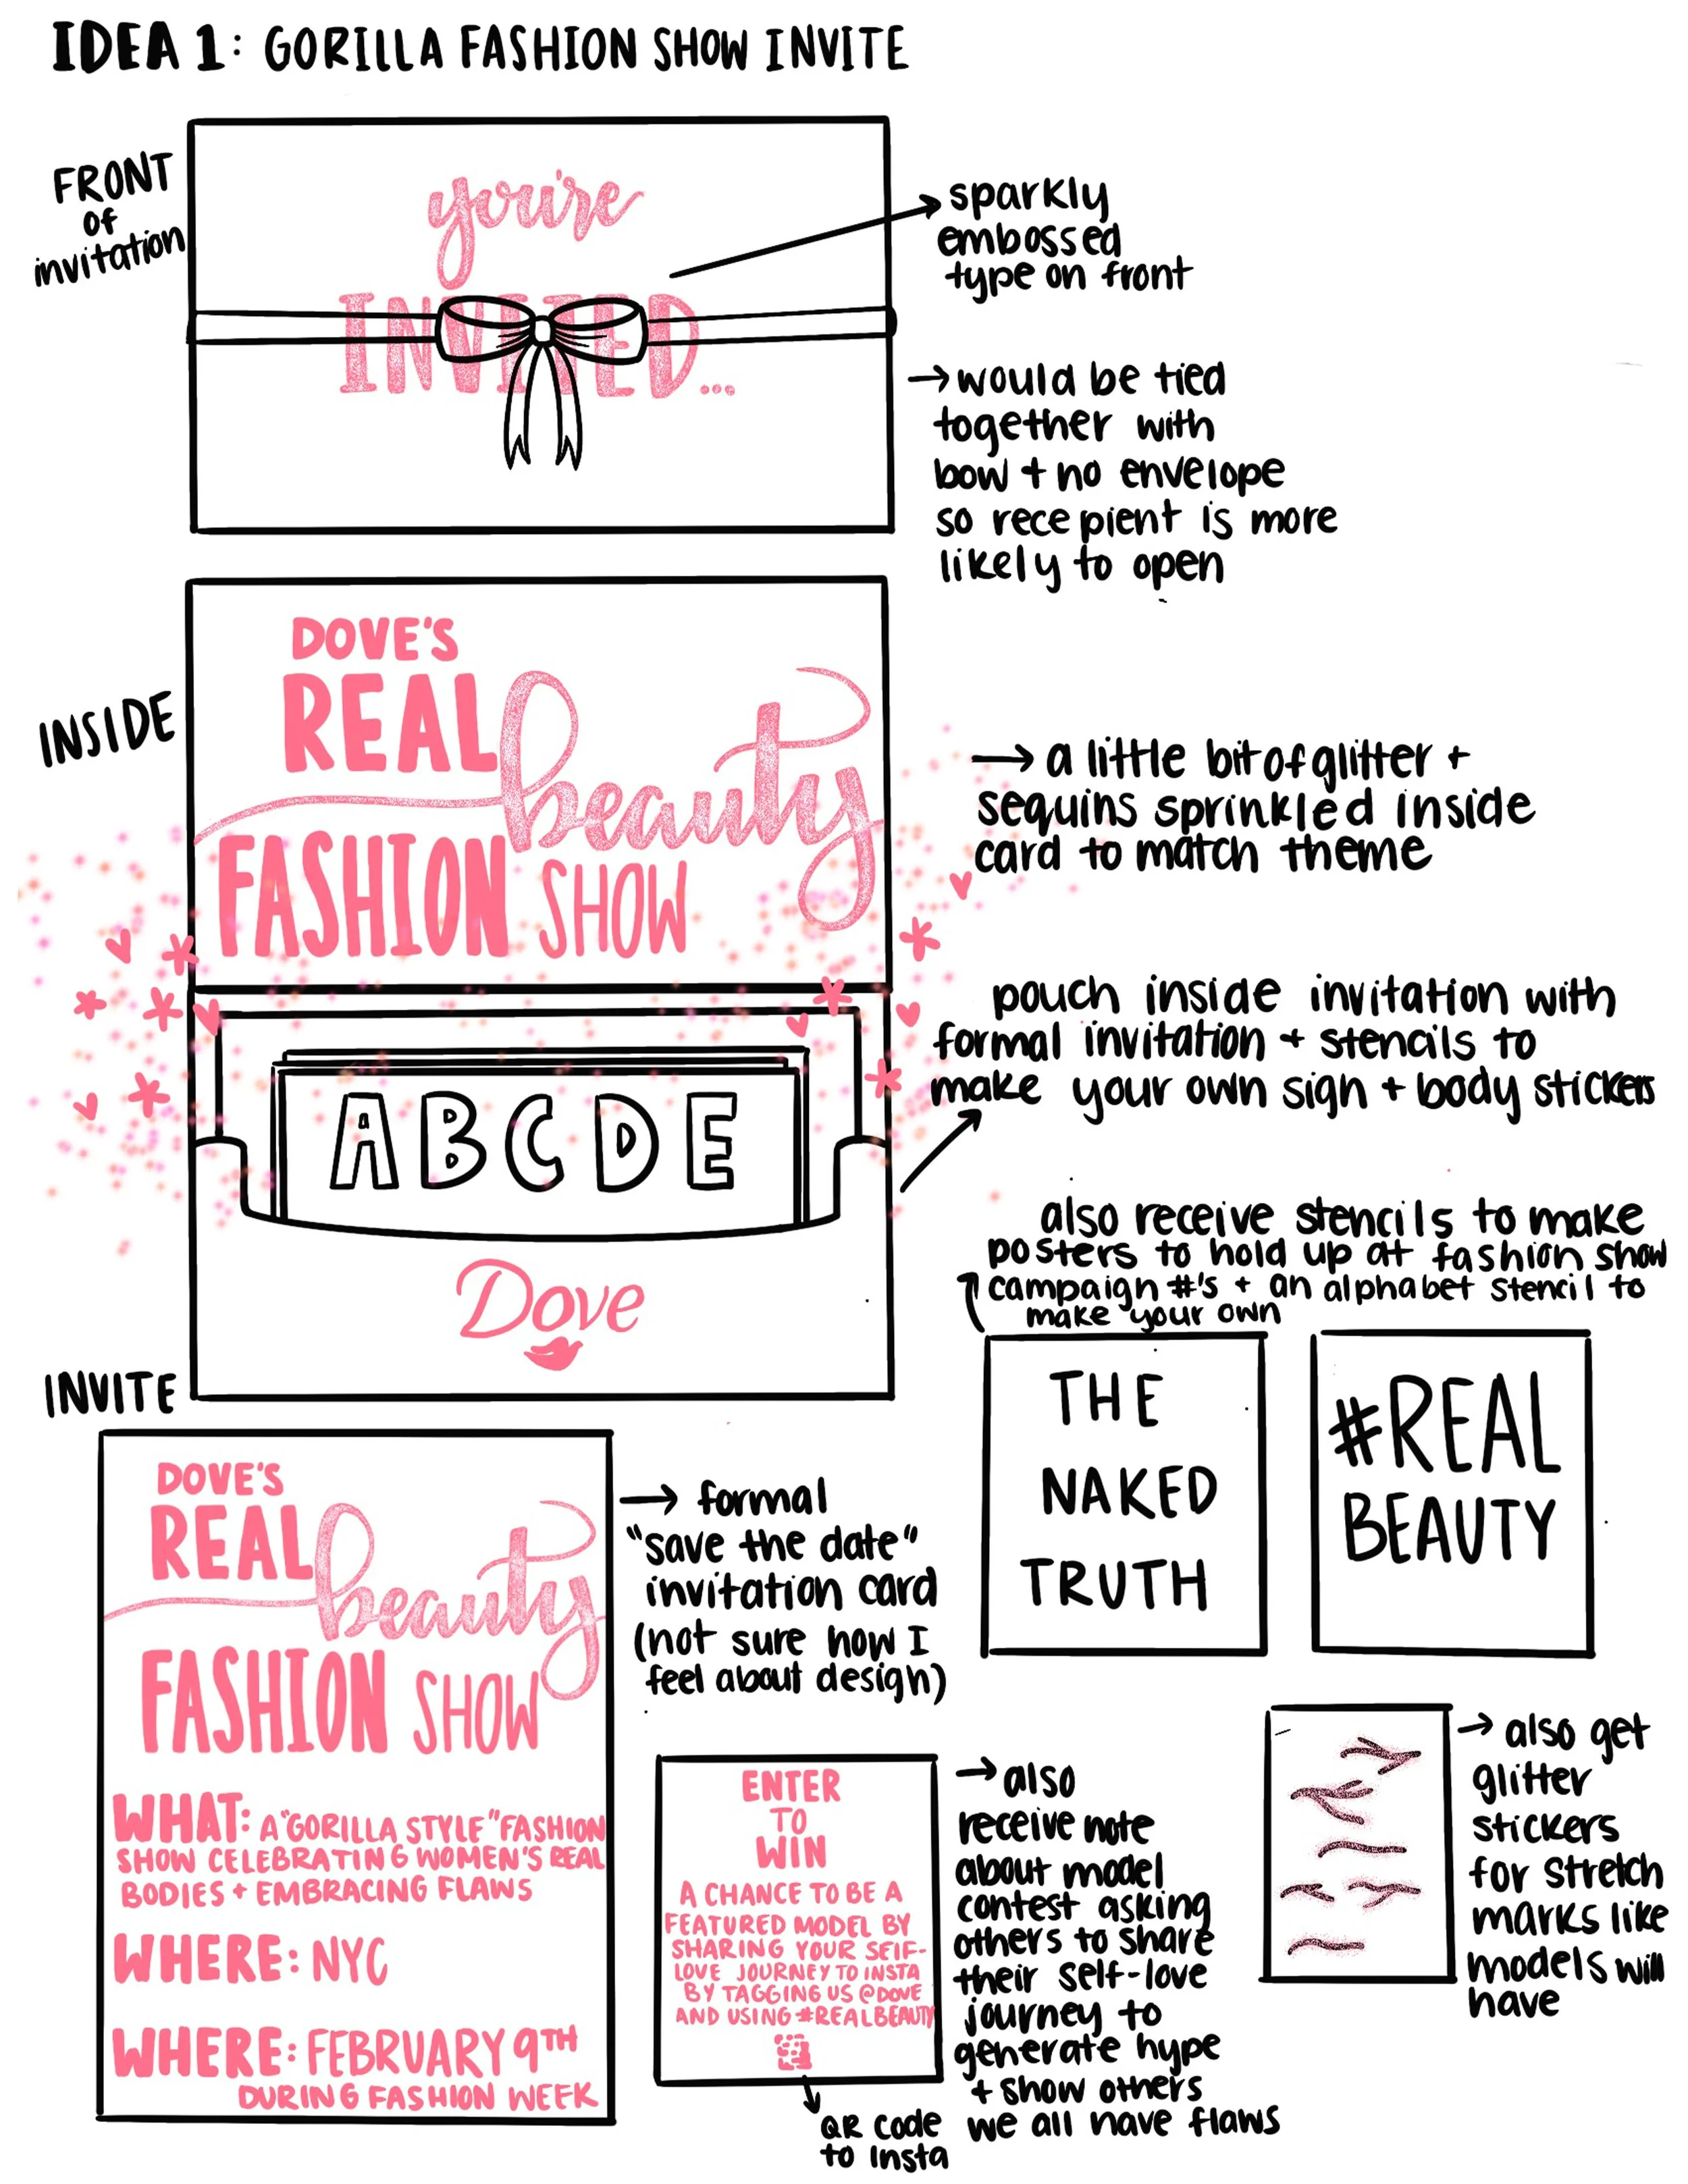 IDEA 1: GORILLA FASHION SHOW INVITE
FRONT
OF
invitation
you're
INVITED...
sparkly
embossed
type on front
would be tied
together with
bow + no envelope
so recepient is more
likely to open
INSIDE
DOVE'S
REAL
beauty
FASHION SHOW
a little bit of glitter +
sequins sprinkled inside
card to match theme
pouch inside invitation with
formal invitation + stencils to
make your own sign + body stickers
A B C D E
Dove
also receive stencils to make
posters to hold up at fashion show
campaign #'s + an alphabet stencil to
make your own
THE
NAKED
TRUTH
#REAL
BEAUTY
INVITE
DOVE'S
REAL
beauty
FASHION SHOW
WHAT: A "GORILLA STYLE" FASHION
SHOW CELEBRATING WOMEN'S REAL
BODIES + EMBRACING FLAWS
WHERE: NYC
WHERE: FEBRUARY 9TH
DURING FASHION WEEK
formal
"save the date"
invitation card
(not sure how I
feel about design)
ENTER
TO
WIN
A CHANCE TO BE A
FEATURED MODEL BY
SHARING YOUR SELF-
LOVE JOURNEY TO INSTA
BY TAGGING US @DOVE
AND USING #REALBEAUTY
QR code
to Insta
also
receive note
about model
contest asking
others to share
their self-love
journey to
generate hype
+ show others
we all have flaws
also get
glitter
stickers
for stretch
marks like
models will
have